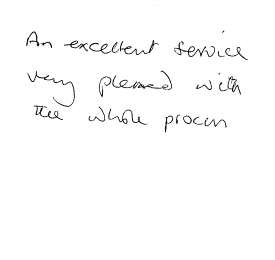 An excellent service
very pleased with
the whole process